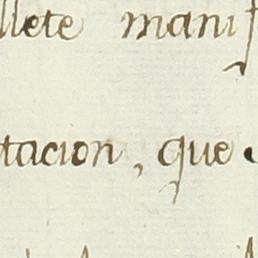 llete manif
tacion, que